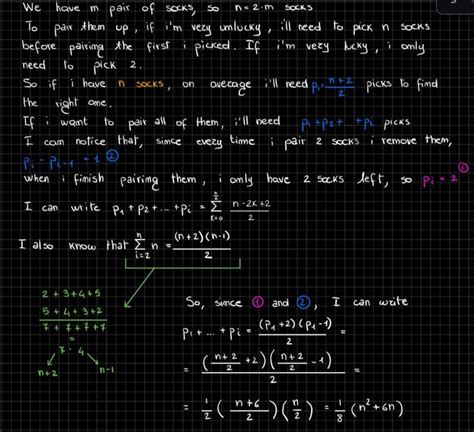 We have m pair of socks, so n = 2·m socks
To pair them up, if i'm very unlucky, i'll need to pick n socks
before pairing the first i picked. If i'm very lucky, i only
need to pick 2.
So if i have n socks, on average i'll need p₁ = (n+2)/2 picks to find
the right one.
If i want to pair all of them, i'll need p₁+p₂+..+pᵢ picks
I can notice that, since every time i pair 2 socks i remove them,
pᵢ - pᵢ₋₁ = 1 ②
when i finish pairing them, i only have 2 socks left, so pᵢ = 2 ①
I can write p₁+p₂+...+pᵢ = Σ (n-2k+2)/2
I also know that Σ n = (n+2)(n-1)/2
2+3+4+5
5+4+3+2
7+7+7+7
=
7 · 4
n+2 n-1
So, since ① and ②, I can write
p₁+...+pᵢ = (p₁+2)(p₁-1)/2 =
= ((n+2)/2 +2)((n+2)/2 -1)/2 =
= 1/2 ((n+6)/2)(n/2) = 1/8 (n²+6n)